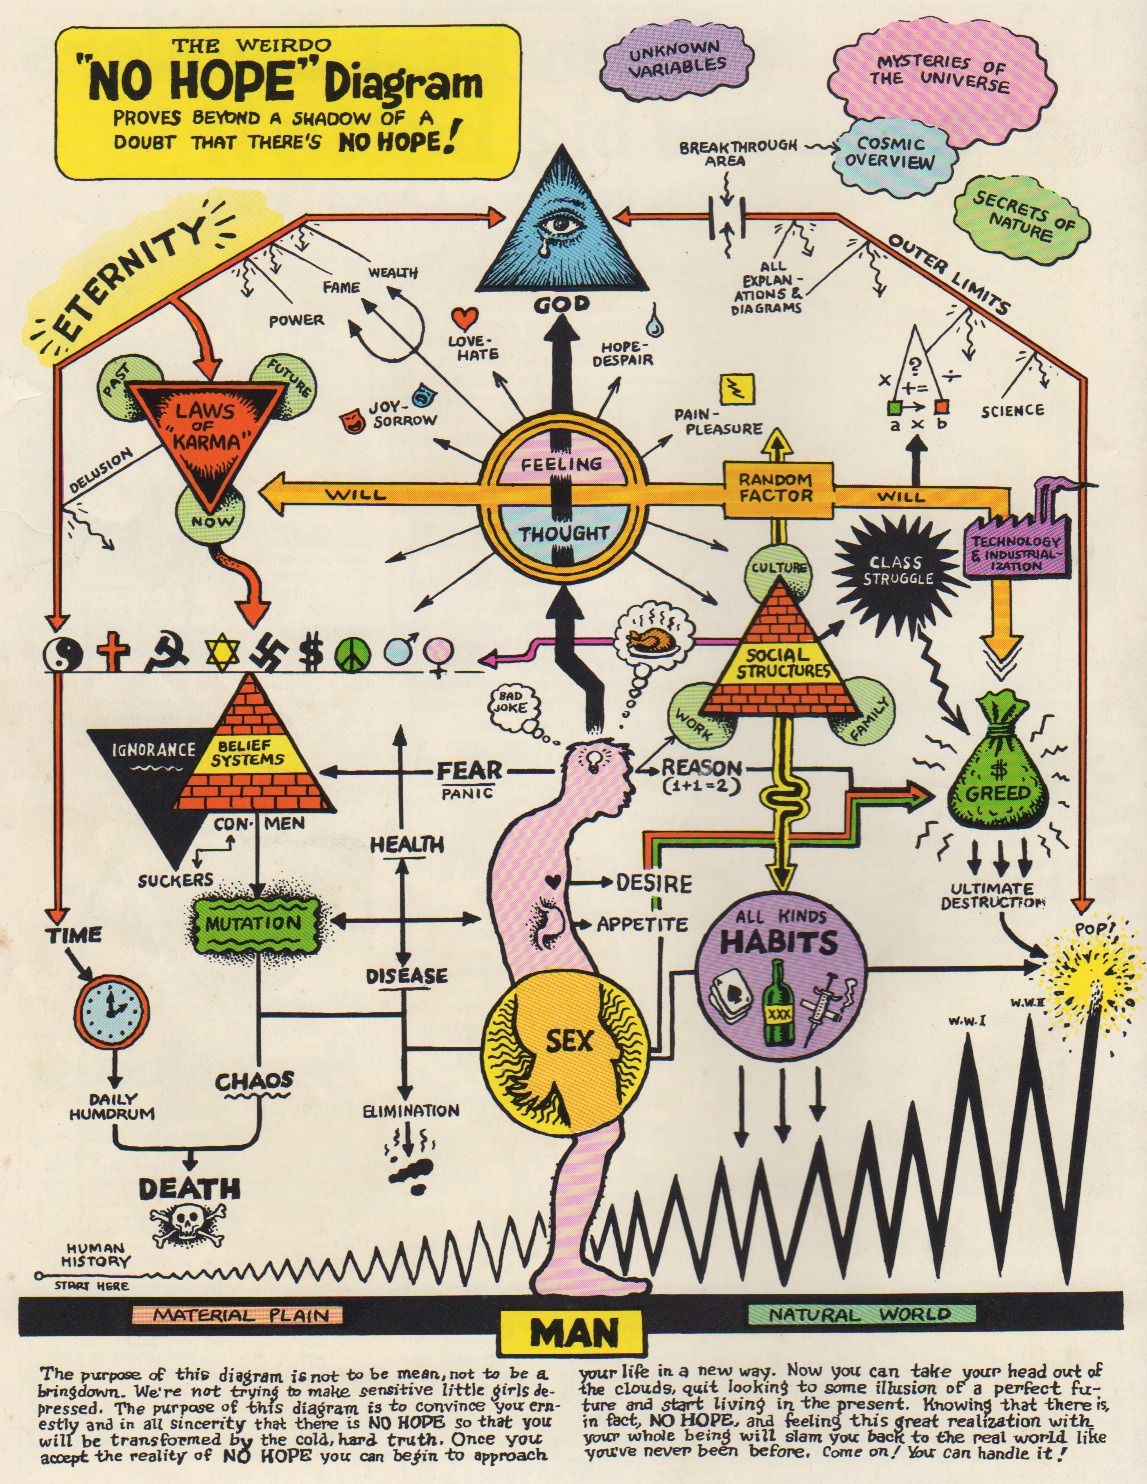 THE WEIRDO
"NO HOPE" Diagram
PROVES BEYOND A SHADOW OF A
DOUBT THAT THERE'S NO HOPE!
UNKNOWN
VARIABLES
MYSTERIES OF
THE UNIVERSE
BREAKTHROUGH
AREA
COSMIC
OVERVIEW
SECRETS OF
NATURE
ETERNITY
WEALTH
FAME
POWER
GOD
ALL
EXPLAN-
ATIONS &
DIAGRAMS
OUTER LIMITS
LOVE-
HATE
HOPE-
DESPAIR
PAST
FUTURE
LAWS
OF
"KARMA"
NOW
JOY-
SORROW
PAIN-
PLEASURE
?
x ÷
+=
a x b
SCIENCE
DELUSION
WILL
FEELING
THOUGHT
RANDOM
FACTOR
WILL
TECHNOLOGY
& INDUSTRIAL-
IZATION
CULTURE
CLASS
STRUGGLE
$
SOCIAL
STRUCTURES
WORK
FAMILY
BAD
JOKE
IGNORANCE
BELIEF
SYSTEMS
FEAR
PANIC
REASON
(1+1=2)
$
GREED
CON-MEN
SUCKERS
HEALTH
DESIRE
APPETITE
ULTIMATE
DESTRUCTION
MUTATION
ALL KINDS
HABITS
XXX
POP!
TIME
DISEASE
SEX
W.W.I
W.W.II
CHAOS
DAILY
HUMDRUM
ELIMINATION
DEATH
HUMAN
HISTORY
START HERE
MATERIAL PLAIN
MAN
NATURAL WORLD
The purpose of this diagram is not to be mean, not to be a
bringdown. We're not trying to make sensitive little girls de-
pressed. The purpose of this diagram is to convince you ern-
estly and in all sincerity that there is NO HOPE so that you
will be transformed by the cold, hard truth. Once you
accept the reality of NO HOPE you can begin to approach
your life in a new way. Now you can take your head out of
the clouds, quit looking to some illusion of a perfect fu-
ture and start living in the present. Knowing that there is,
in fact, NO HOPE, and feeling this great realization with
your whole being will slam you back to the real world like
you've never been before. Come on! You can handle it!